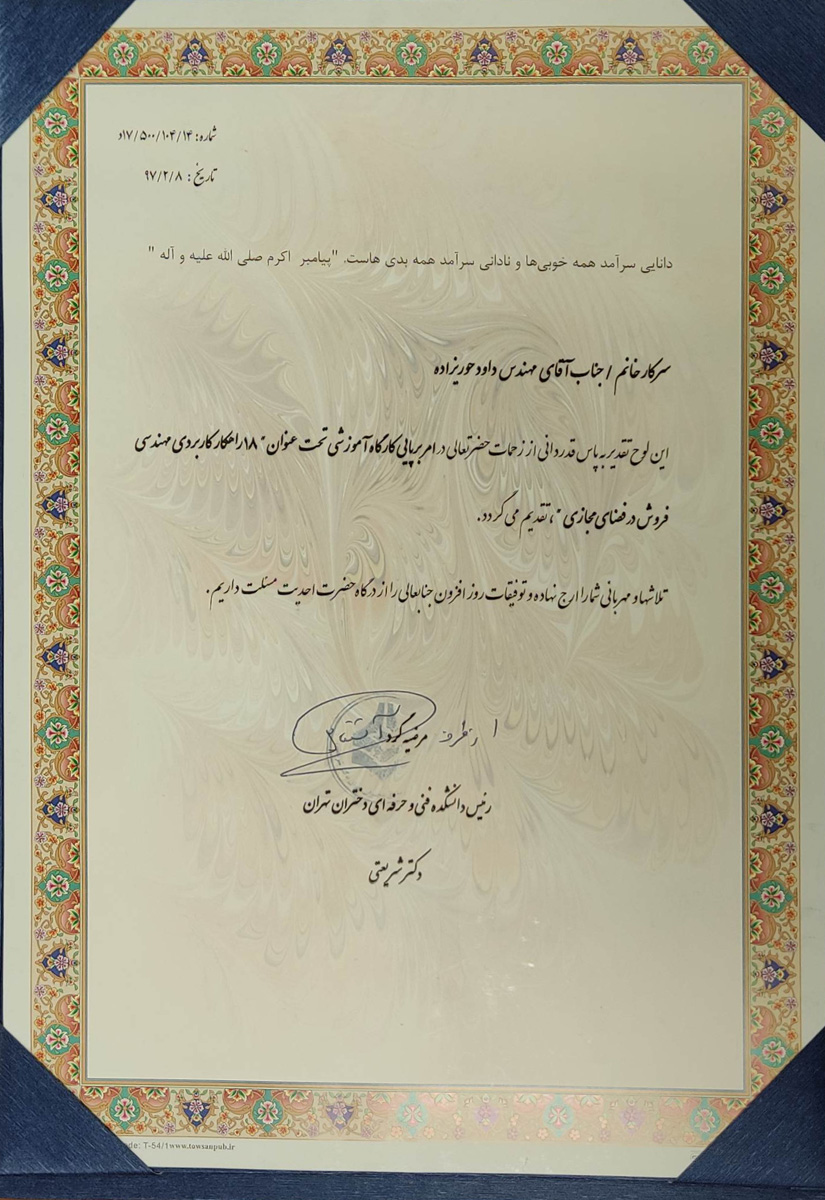 شماره: ۱۷/۵۰۰/۱۰۴/۱۴د
تاریخ: ۹۷/۲/۸
دانایی سرآمد همه خوبی‌ها و نادانی سرآمد همه بدی هاست. "پیامبر اکرم صلی الله علیه و آله "
سرکار خانم / جناب آقای مهندس داود حوریزاده
این لوح تقدیر به پاس قدردانی از زحمات حضرتعالی در امر برپایی کارگاه آموزشی تحت عنوان "۱۸ راهکار کاربردی مهندسی
فروش در فضای مجازی"، تقدیم می گردد.
تلاشها و مهربانی شما را ارج نهاده و توفیقات روز افزون جنابعالی را از درگاه حضرت احدیت مسئلت داریم.
از طرف مرضیه گرد
رئیس دانشکده فنی و حرفه ای دختران تهران
دکتر شریعتی
de: T-54/1www.tawsanpub.ir